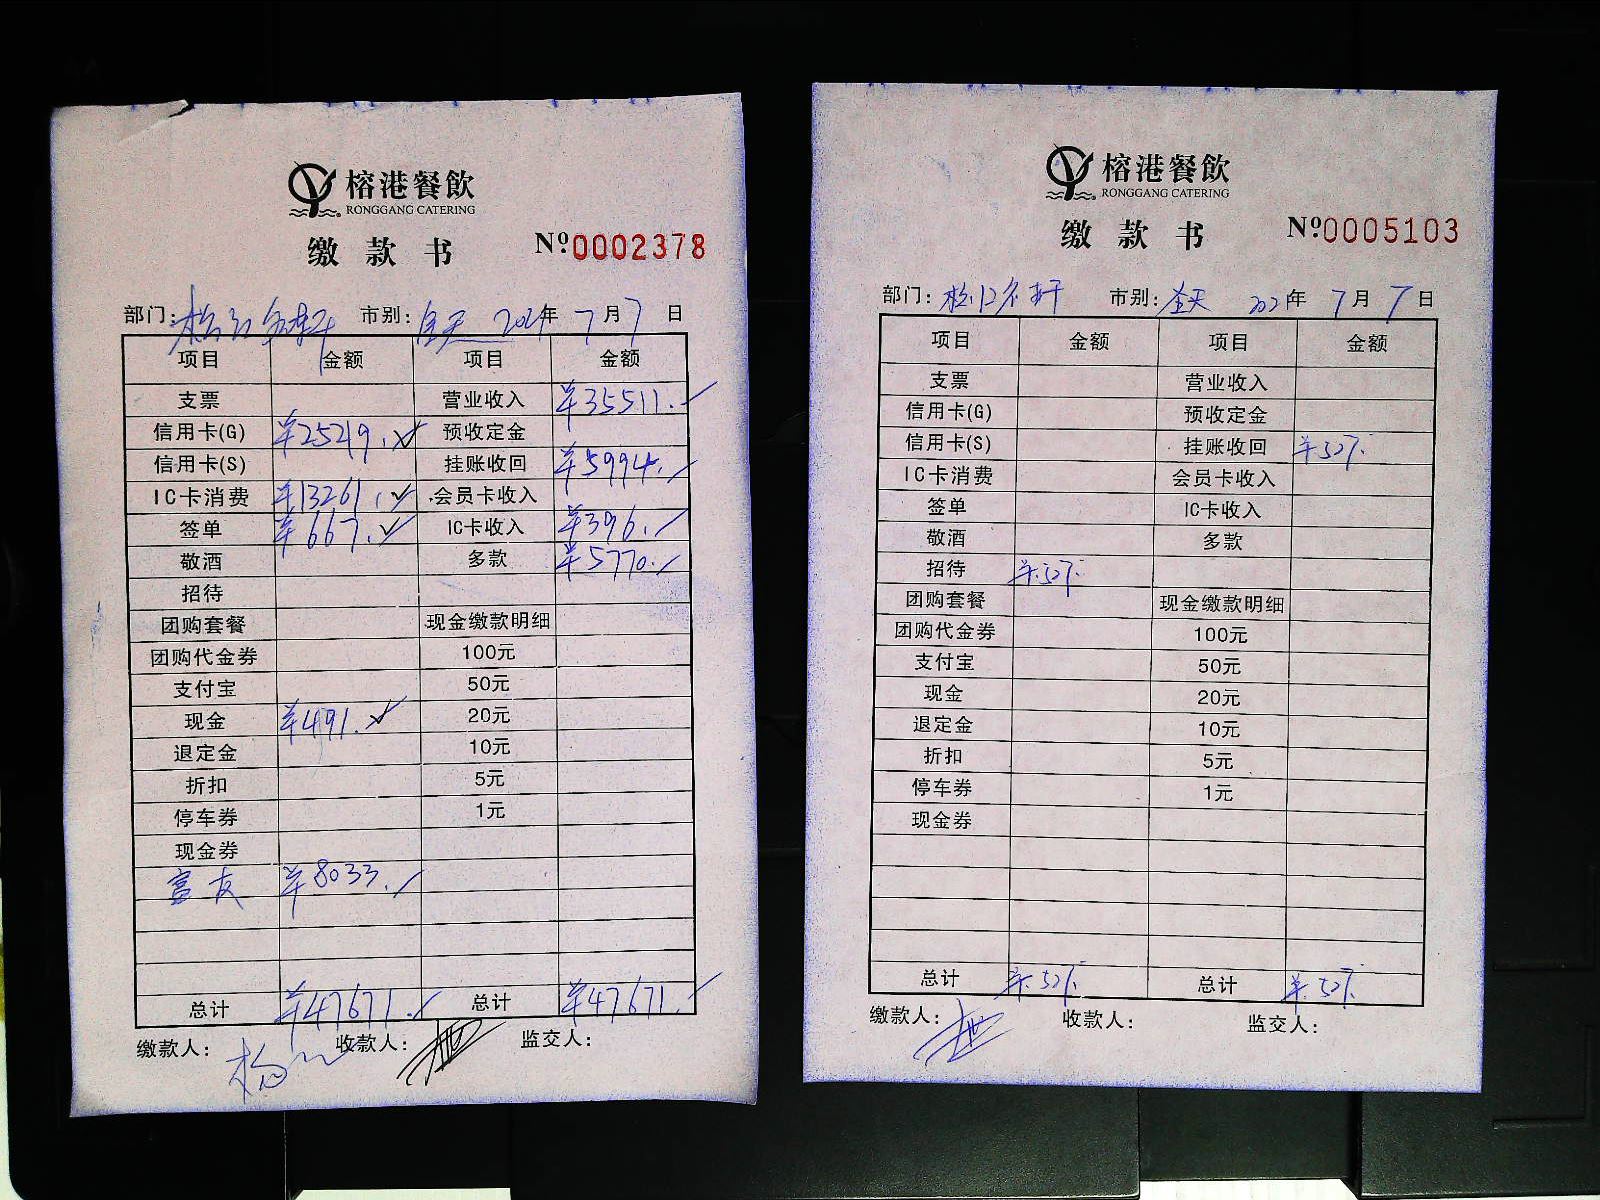 榕港餐飲
RONGGANG CATERING
缴款书 Nº0002378
部门: 松江名轩 市别: 全天 2021年 7月7日
项目 金额 项目 金额
支票 营业收入 ¥35511.
信用卡(G) ¥25219. 预收定金
信用卡(S) 挂账收回 ¥5994.
IC卡消费 ¥13261. 会员卡收入
签单 ¥667. IC卡收入 ¥396.
敬酒 多款 ¥5770.
招待
团购套餐 现金缴款明细
团购代金券 100元
支付宝 50元
现金 ¥491. 20元
退定金 10元
折扣 5元
停车券 1元
现金券
富友 ¥8033.
总计 ¥47671. 总计 ¥47671.
缴款人: 收款人: 监交人:
榕港餐飲
RONGGANG CATERING
缴款书 Nº0005103
部门: 松江名轩 市别: 全天 2021年 7月7日
项目 金额 项目 金额
支票 营业收入
信用卡(G) 预收定金
信用卡(S) 挂账收回 ¥527.
IC卡消费 会员卡收入
签单 IC卡收入
敬酒 多款
招待 ¥527.
团购套餐 现金缴款明细
团购代金券 100元
支付宝 50元
现金 20元
退定金 10元
折扣 5元
停车券 1元
现金券
总计 ¥527. 总计 ¥527.
缴款人: 收款人: 监交人: